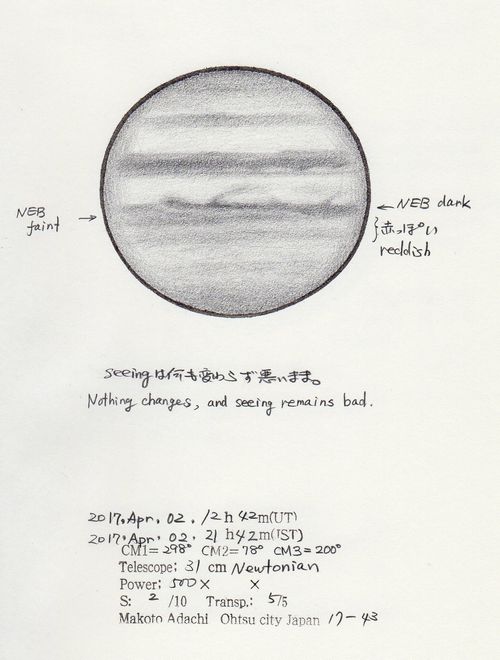 NEB faint →
← NEB dark
} 赤っぽい
reddish
seeingは何も変わらず悪いまま。
Nothing changes, and seeing remains bad.
2017, Apr, 02, 12 h 42 m(UT)
2017, Apr, 02, 21 h 42 m(JST)
CM1= 298° CM2= 78° CM3= 200°
Telescope; 31 cm Newtonian
Power; 500 × ×
S: 2 /10 Transp.; 5/5
Makoto Adachi Ohtsu city Japan 17-43